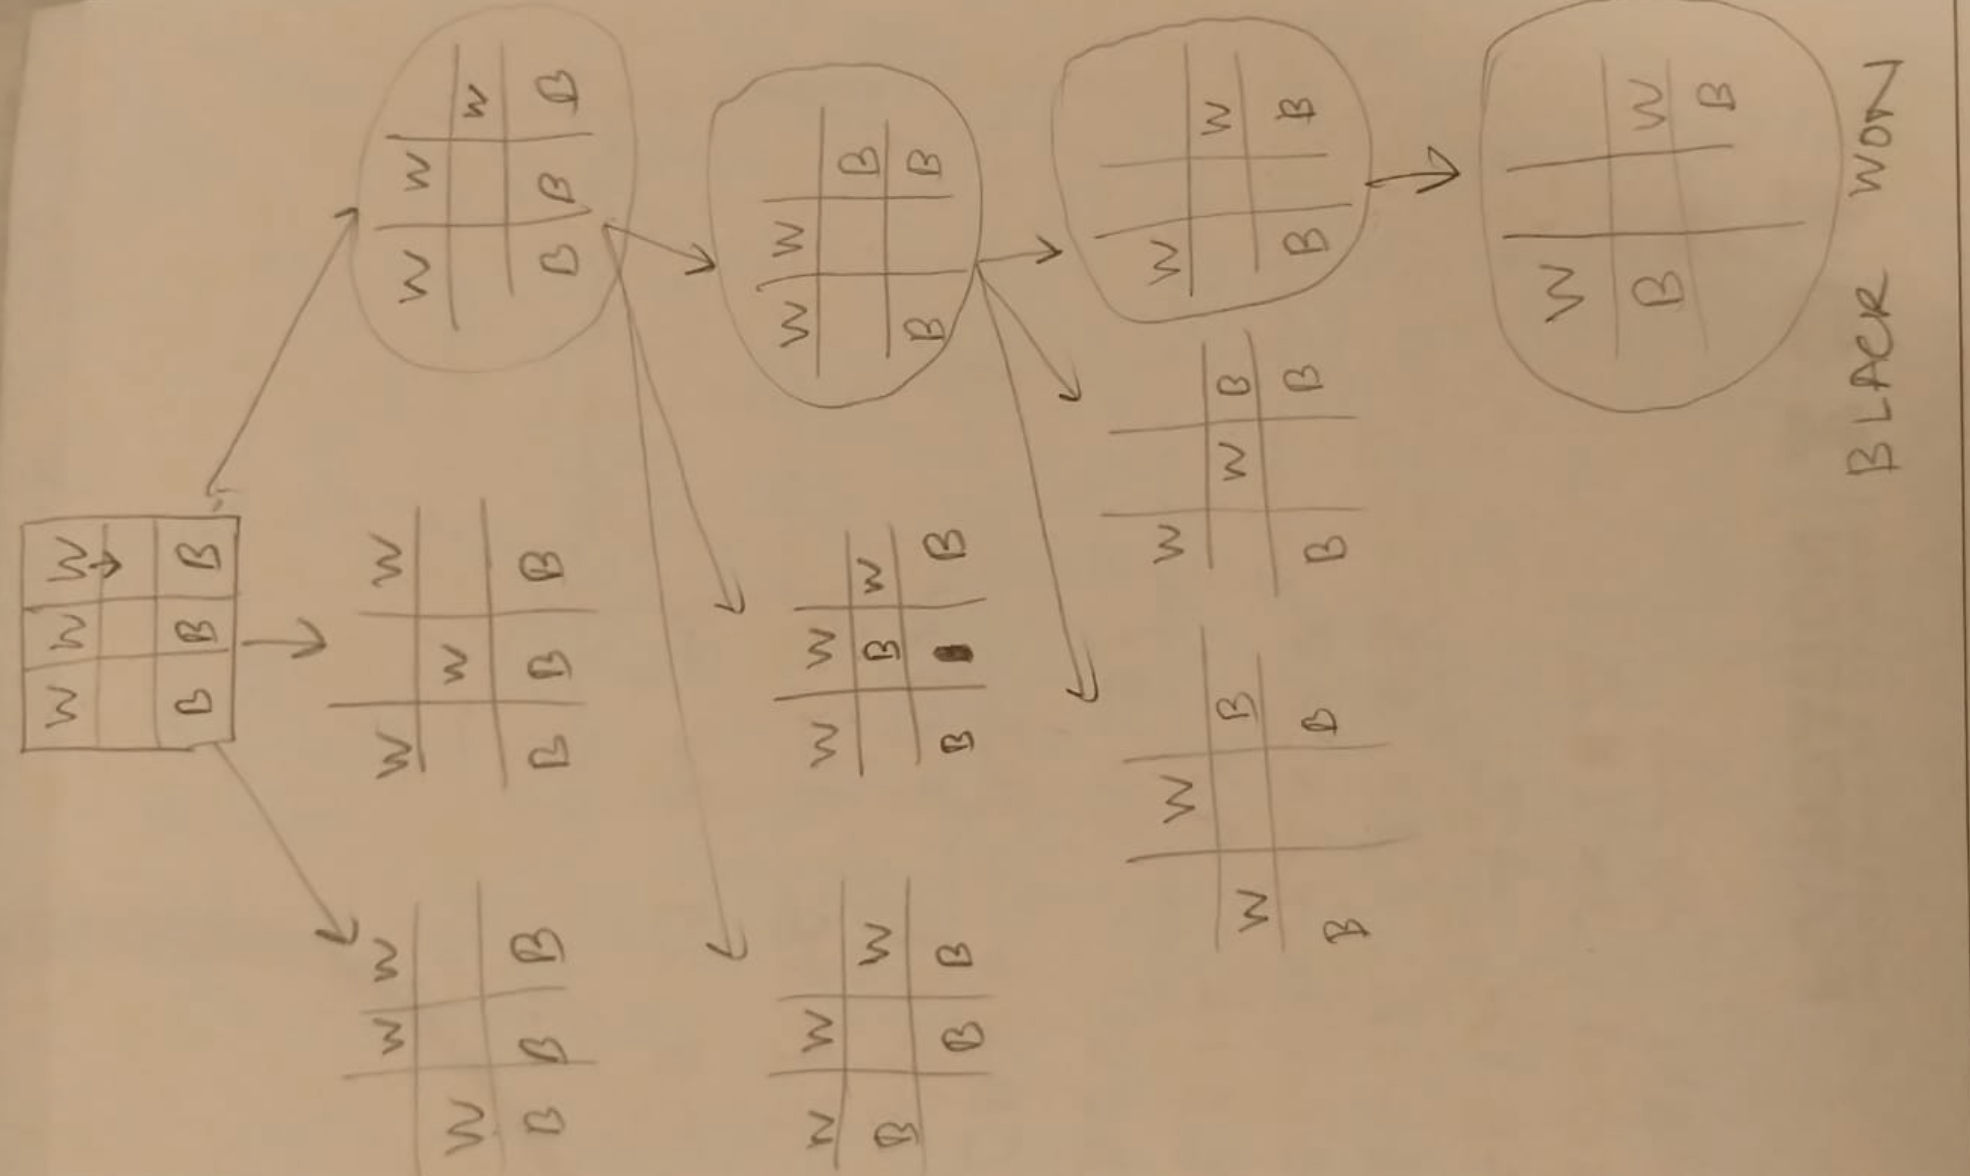 W W W
B B B
W W
W
B B B
W W
W
B B B
W W
W
B B B
W W
B W
B B
W W
B W
B B
W W
B
B B
W
W B
B B
W
W B
B B
W
W
B B
W
B W
B
BLACK WON